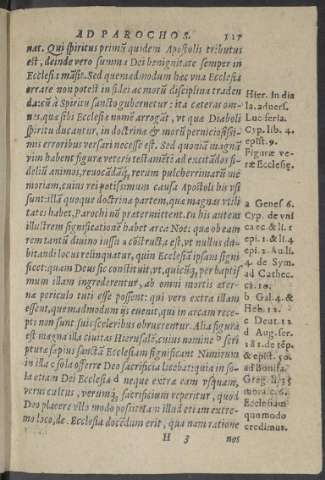 AD PAROCHOS. 117
nat. Qui spiritus primũ quidem Apostolis tributus
est, deinde vero summa Dei benignitate semper in
Ecclesia mãsit. Sed quemadmodum hæc vna Ecclesia
errare non potest in fidei ac morũ disciplina traden
da: cũ à Spiritu sancto gubernetur: ita ceteras om-
nes, quæ sibi Ecclesiæ nomẽ arrogãt, vt quæ Diaboli
spiritu ducantur, in doctrinæ & morũ perniciosissi-
mis erroribus versari necesse est. Sed quoniã magnã
vim habent figuræ veteris testamẽti ad excitãdos fi-
deliũ animos, reuocãdaq́; rerum pulcherrimarũ me
moriam, cuius rei potissimum causa Apostoli his vsi
sunt: illã quoque doctrinæ partem, quæ magnas vtili
tates habet, Parochi nõ prætermittent. In his autem
illustrem significationẽ habet arca Noe: quæ ob eam
rem tantũ diuino iussu a cõstructa est, vt nullus du-
bitandi locus relinquatur, quin Ecclesiã ipsam signi
ficet: quam Deus sic constituit, vt, quicũq́; per baptis
mum illam ingrederentur, ab omni mortis æter-
næ periculo tuti esse possent: qui verò extra illam
essent, quemadmodum ijs euenit, qui in arcam rece-
pti non sunt suis sceleribus obruerentur. Alia figura
est magna illa ciuitas Hierusalẽ, cuius nomine b scri
ptura sæpius sanctã Ecclesiam significant Nimirum
in illa c sola offerre Deo sacrificia licebat: quia in so-
la etiam Dei Ecclesia d neque extra eam vsquam,
verus cultus, verumq́; sacrificium reperitur, quod
Deo placere vllo modo possit. Iam illud etiam extre-
mo loco, de Ecclesia docẽdum erit, qua nam ratione
H 3 nos
Hier. in dia
la. aduers.
Luciferia.
Cyp. lib. 4.
epist. 9.
Figuræ ve-
ræ Ecclesię.
a Genes 6.
Cyp. de vni
ca ec. & li. 1
epi. 1. & li. 4
epi 2. Aull.
4. de Sym.
ad Cathec.
ca. 10.
b Gal. 4. &
Heb. 12.
c Deut. 12.
d Aug. ser.
181. de tẽp.
& epist. 50.
ad Bonifa.
Greg. li. 35
mora. c. 6.
Ecclesiam
quomodo
credimus.